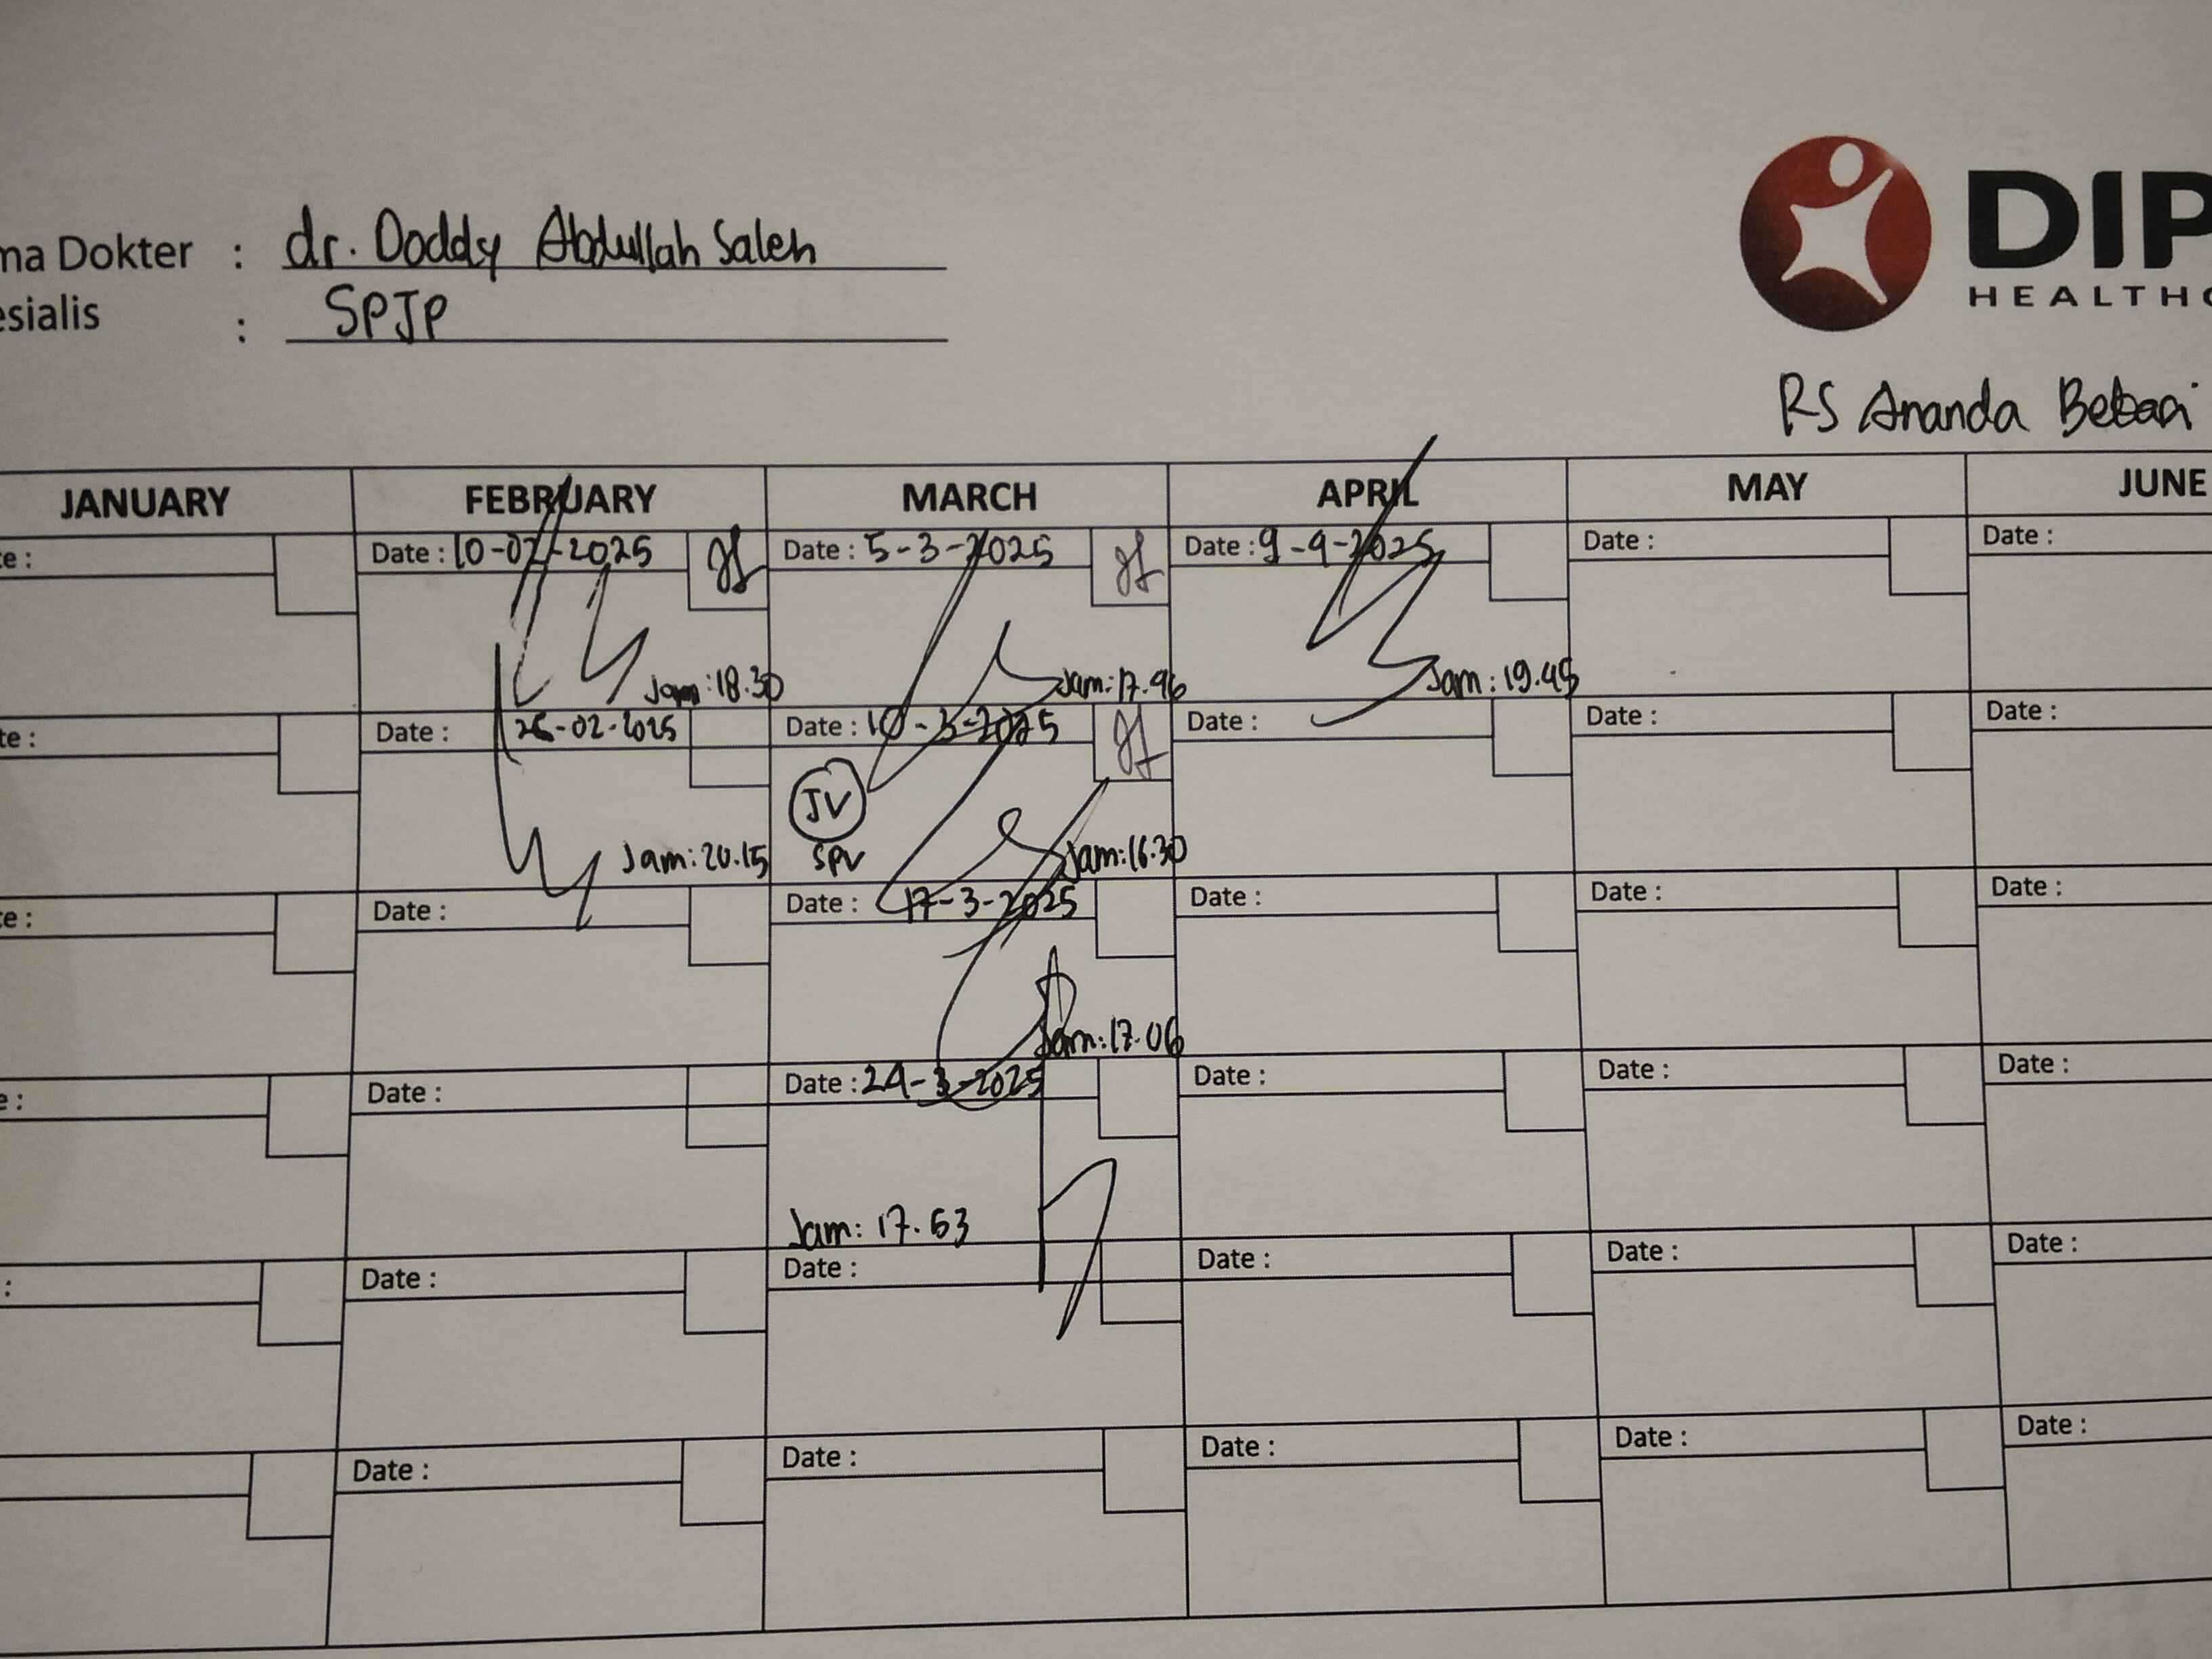 ma Dokter : dr. Doddy Abdullah Saleh
esialis : SPJP
DIP
HEALTHC
RS Ananda Bekasi
JANUARY FEBRUARY MARCH APRIL MAY JUNE
te: Date : 10-02-2025 Date : 5-3-2025 Date : 9-4-2025 Date : Date :
Jam: 18.30 Jam: 17.46 Jam: 19.45
te: Date : 26-02-2025 Date : 10-3-2025 Date : Date : Date :
JV
SPV
Jam: 20.15 Jam: 16.30
te: Date : Date : 17-3-2025 Date : Date : Date :
Jam: 17.06
e: Date : Date : 24-3-2025 Date : Date : Date :
Jam: 17.53
: Date : Date : Date : Date : Date :
Date : Date : Date : Date : Date :